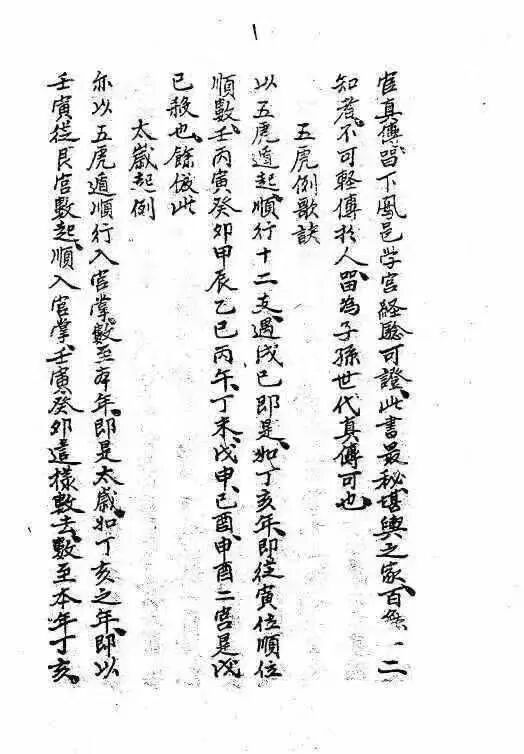 1
官真傳留下鳳邑学宮経驗可證、此書最秘、堪輿之家、百一二
知者、不可軽傳於人、留為子孫世代真傳可也
五虎例歌訣
以五虎遁起、順行十二支、遇戊己即是、如丁亥年、即從寅位順位
順數、壬丙寅癸卯甲辰乙巳丙午、丁未、戊申、己酉、申酉二宮是戊
己殺也、餘倣此
太歲起例
亦以五虎遁順行入官掌、數至本年、即是太歲、如丁亥之年、即以
壬寅從艮宮數起、順入官掌、壬寅癸卯這樣數去、數至本年丁亥、